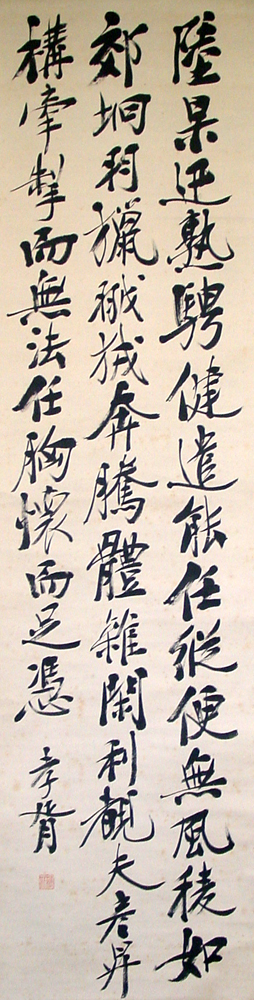 陸杲迅熟騁健遣能任縱便無風稜如
郊坰羽獵奔騰體雜閑利覩夫彥昇
構牽掣而無法任胸懷而足憑
孝胥